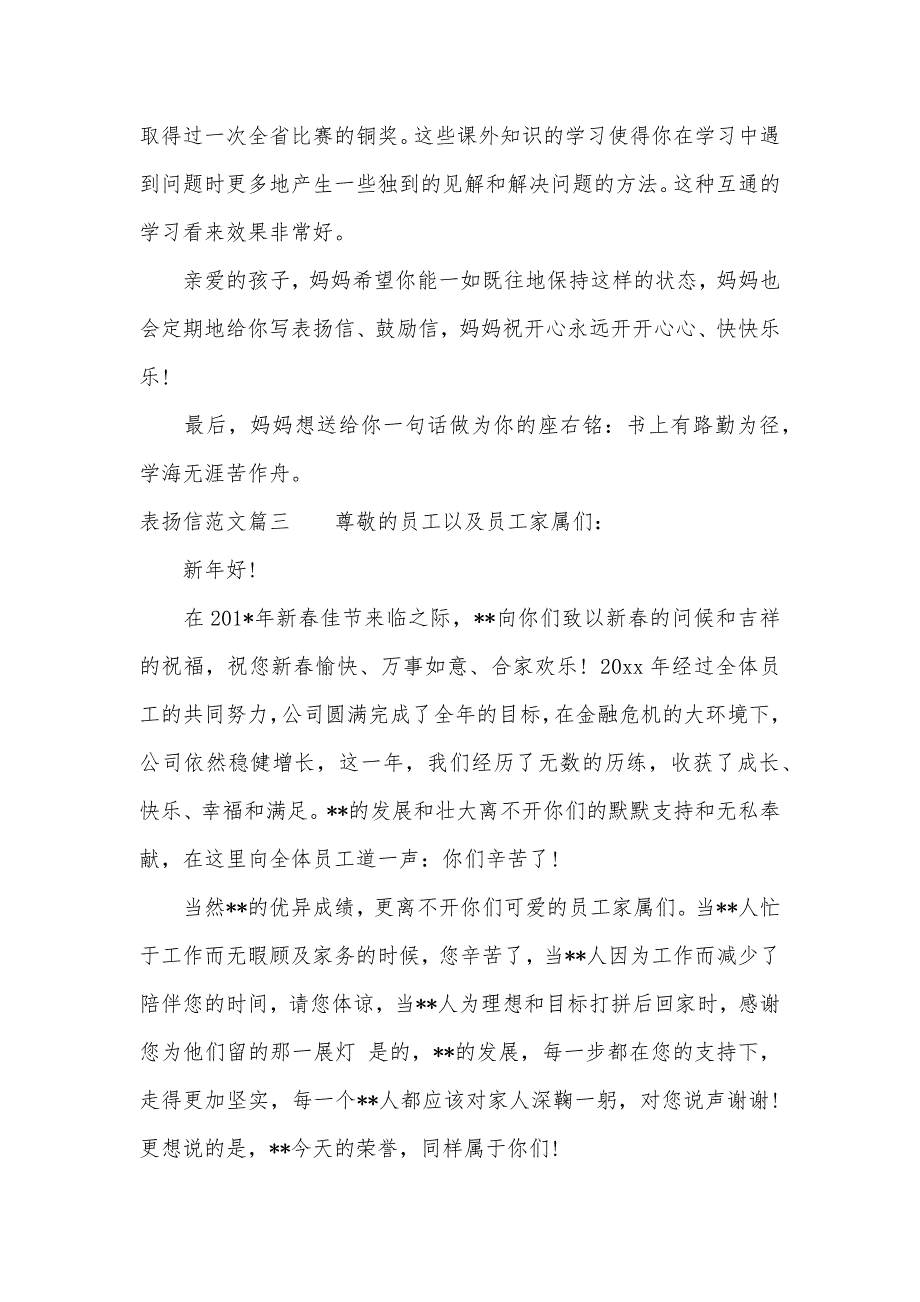 取得过一次全省比赛的铜奖。这些课外知识的学习使得你在学习中遇
到问题时更多地产生一些独到的见解和解决问题的方法。这种互通的
学习看来效果非常好。
亲爱的孩子，妈妈希望你能一如既往地保持这样的状态，妈妈也
会定期地给你写表扬信、鼓励信，妈妈祝开心永远开开心心、快快乐
乐!
最后，妈妈想送给你一句话做为你的座右铭：书上有路勤为径，
学海无涯苦作舟。
表扬信范文篇三　　尊敬的员工以及员工家属们：
新年好!
在 201*年新春佳节来临之际，**向你们致以新春的问候和吉祥
的祝福，祝您新春愉快、万事如意、合家欢乐! 20xx 年经过全体员
工的共同努力，公司圆满完成了全年的目标，在金融危机的大环境下，
公司依然稳健增长，这一年，我们经历了无数的历练，收获了成长、
快乐、幸福和满足。**的发展和壮大离不开你们的默默支持和无私奉
献，在这里向全体员工道一声：你们辛苦了!
当然**的优异成绩，更离不开你们可爱的员工家属们。当**人忙
于工作而无暇顾及家务的时候，您辛苦了，当**人因为工作而减少了
陪伴您的时间，请您体谅，当**人为理想和目标打拼后回家时，感谢
您为他们留的那一展灯 是的，**的发展，每一步都在您的支持下，
走得更加坚实，每一个**人都应该对家人深鞠一躬，对您说声谢谢!
更想说的是，**今天的荣誉，同样属于你们!